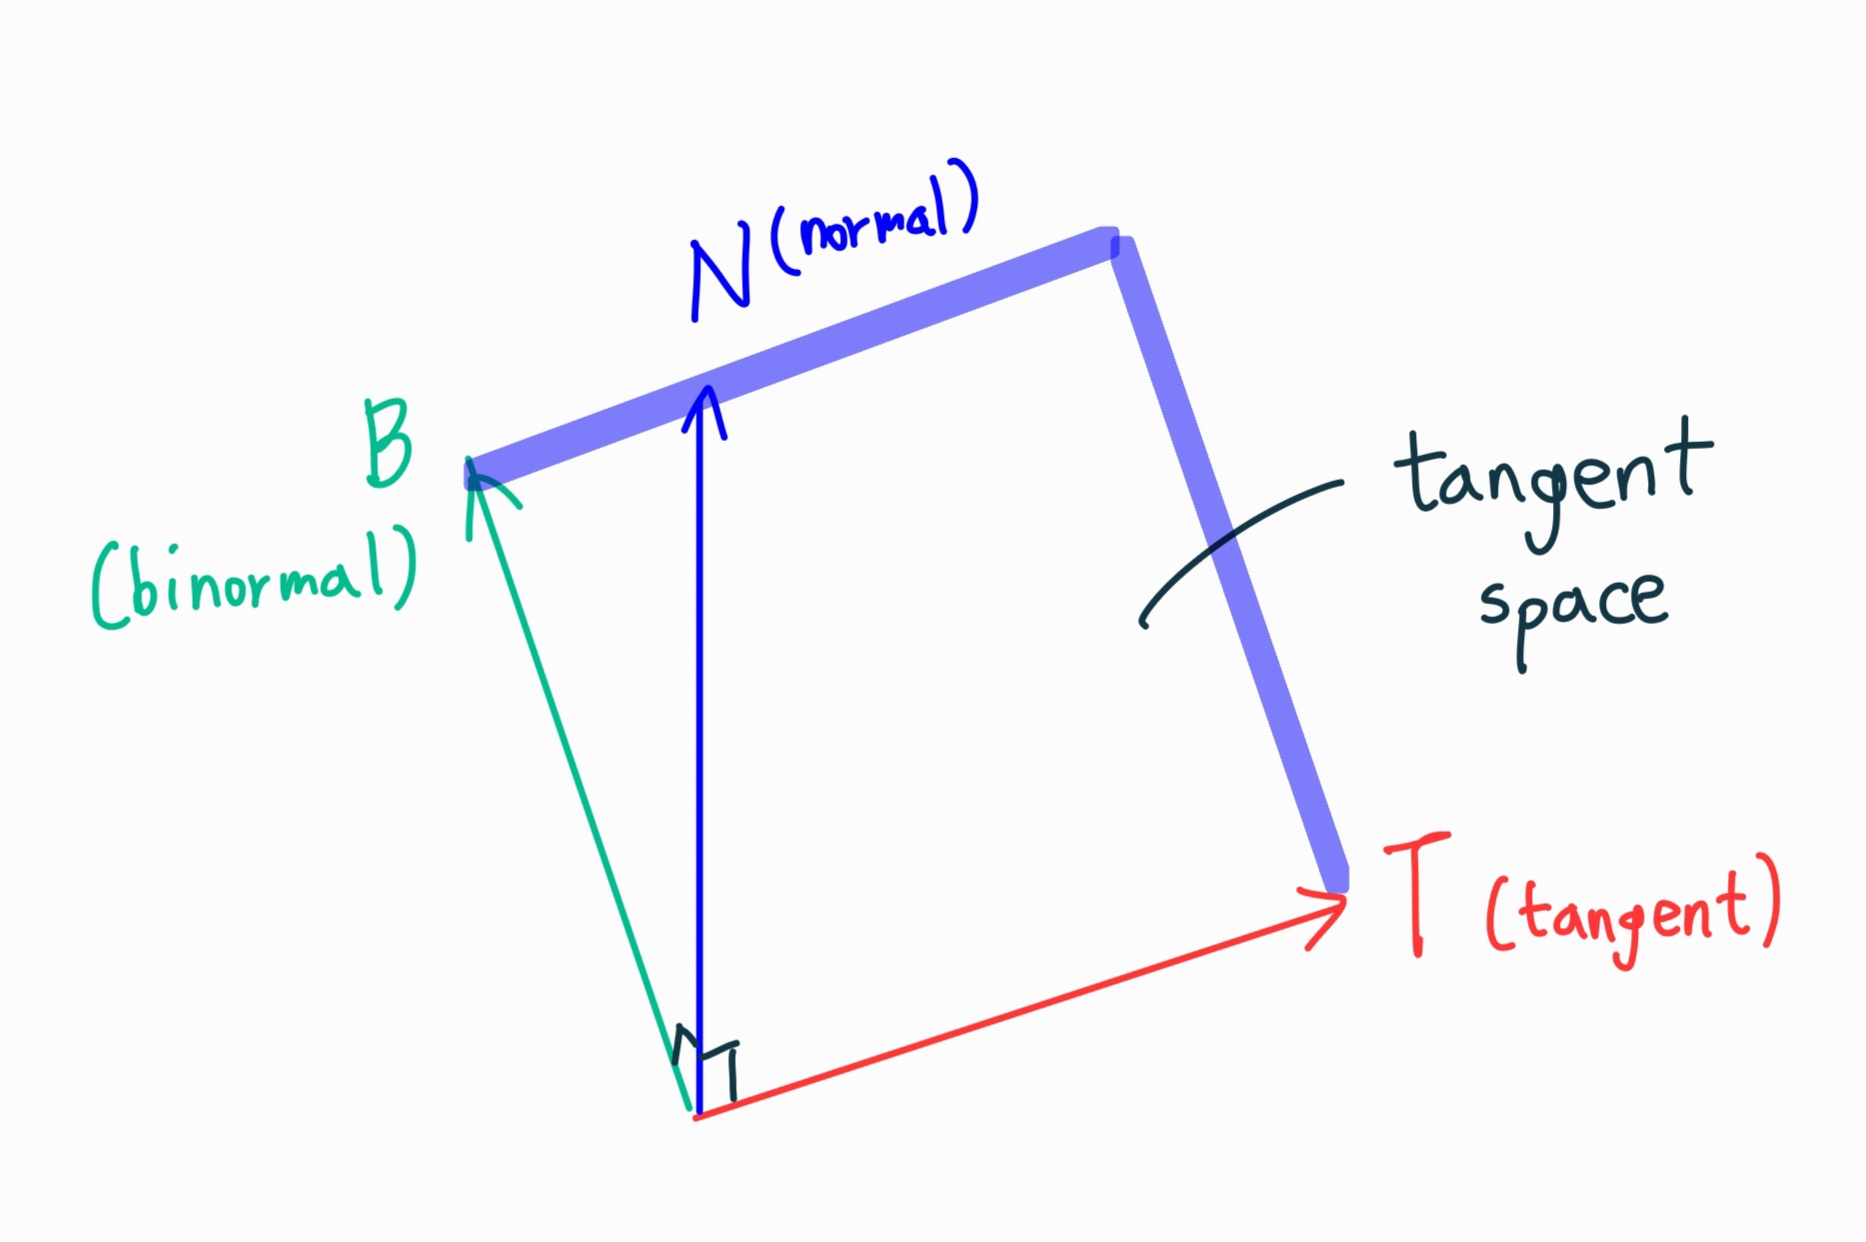 N (normal)
B
(binormal)
tangent
space
T (tangent)